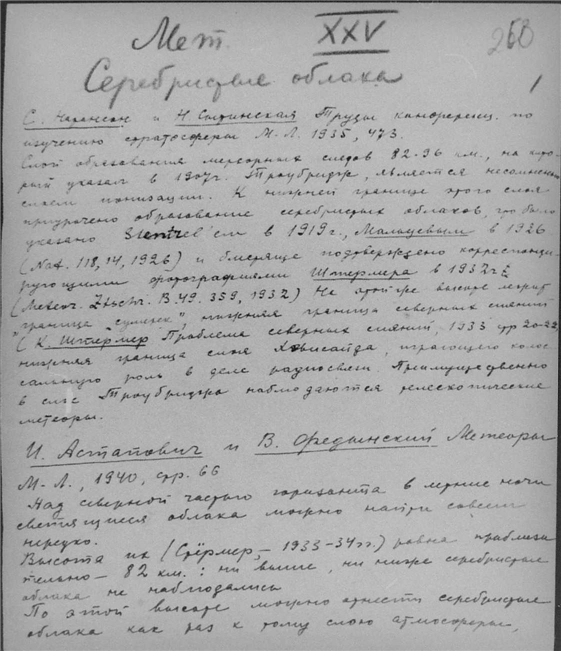 Мет. XXV 260
Серебристые облака
1
С. Натансон и Н. Сытинская Труды конференц. по
изучению стратосферы М.-Л. 1935, 473.
Слой образования метеорных следов 82-96 км., на кото-
рый указал в 1907г. Троубридж, является несомненно
слоем ионизации. К нижней границе этого слоя
приурочено образование серебристых облаков, что было
указано в 1919г., Мальцевым в 1926
(Nat. 118, 14, 1926) и блестяще подтверждено корреспонди-
рующими фотографиями Штермера в 1932г.
(Meteor. Ztschr. B 49. 359, 1932) На этой же высоте лежит
граница "сумерек", нижняя граница северных сияний
(К. Штермер Проблема северных сияний, 1933 стр 20-22)
нижняя граница слоя Хэвисайда, играющего колос
сальную роль в деле радиосвязи. Преимущественно
в слое Троубриджа наблюдаются телескопические
метеоры.
И. Астапович и В. Федынский Метеоры
М-Л., 1940, стр. 66
Над северной частью горизонта в летние ночи
светящиеся облака можно найти совсем
нередко.
Высота их (Стёрмер, – 1933-34гг.) равна приблизи
тельно – 82 км.: ни выше, ни ниже серебристые
облака не наблюдались
По этой высоте можно отнести серебристые
облака как раз к тому слою атмосферы,